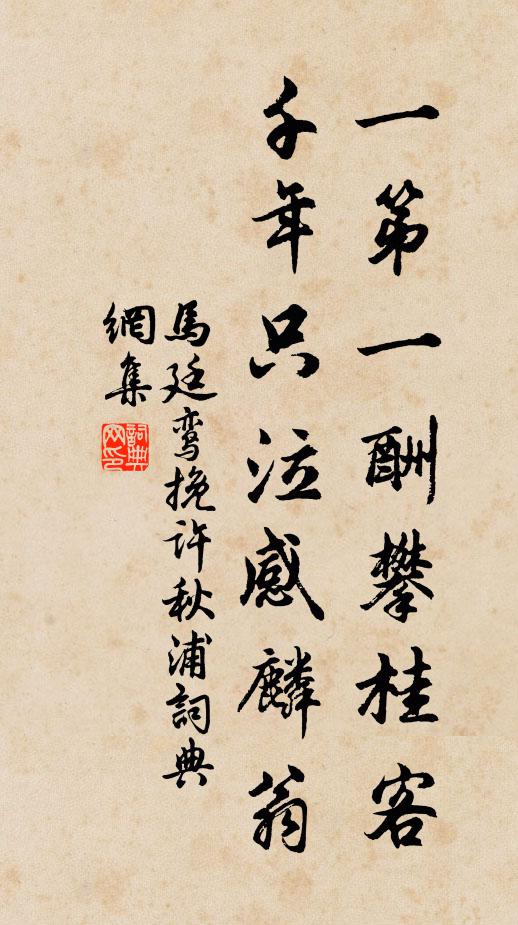 一第一酬攀桂客
千年只泣感麟翁
馬廷鸾挽许秋浦詞典
網集
詞典網印